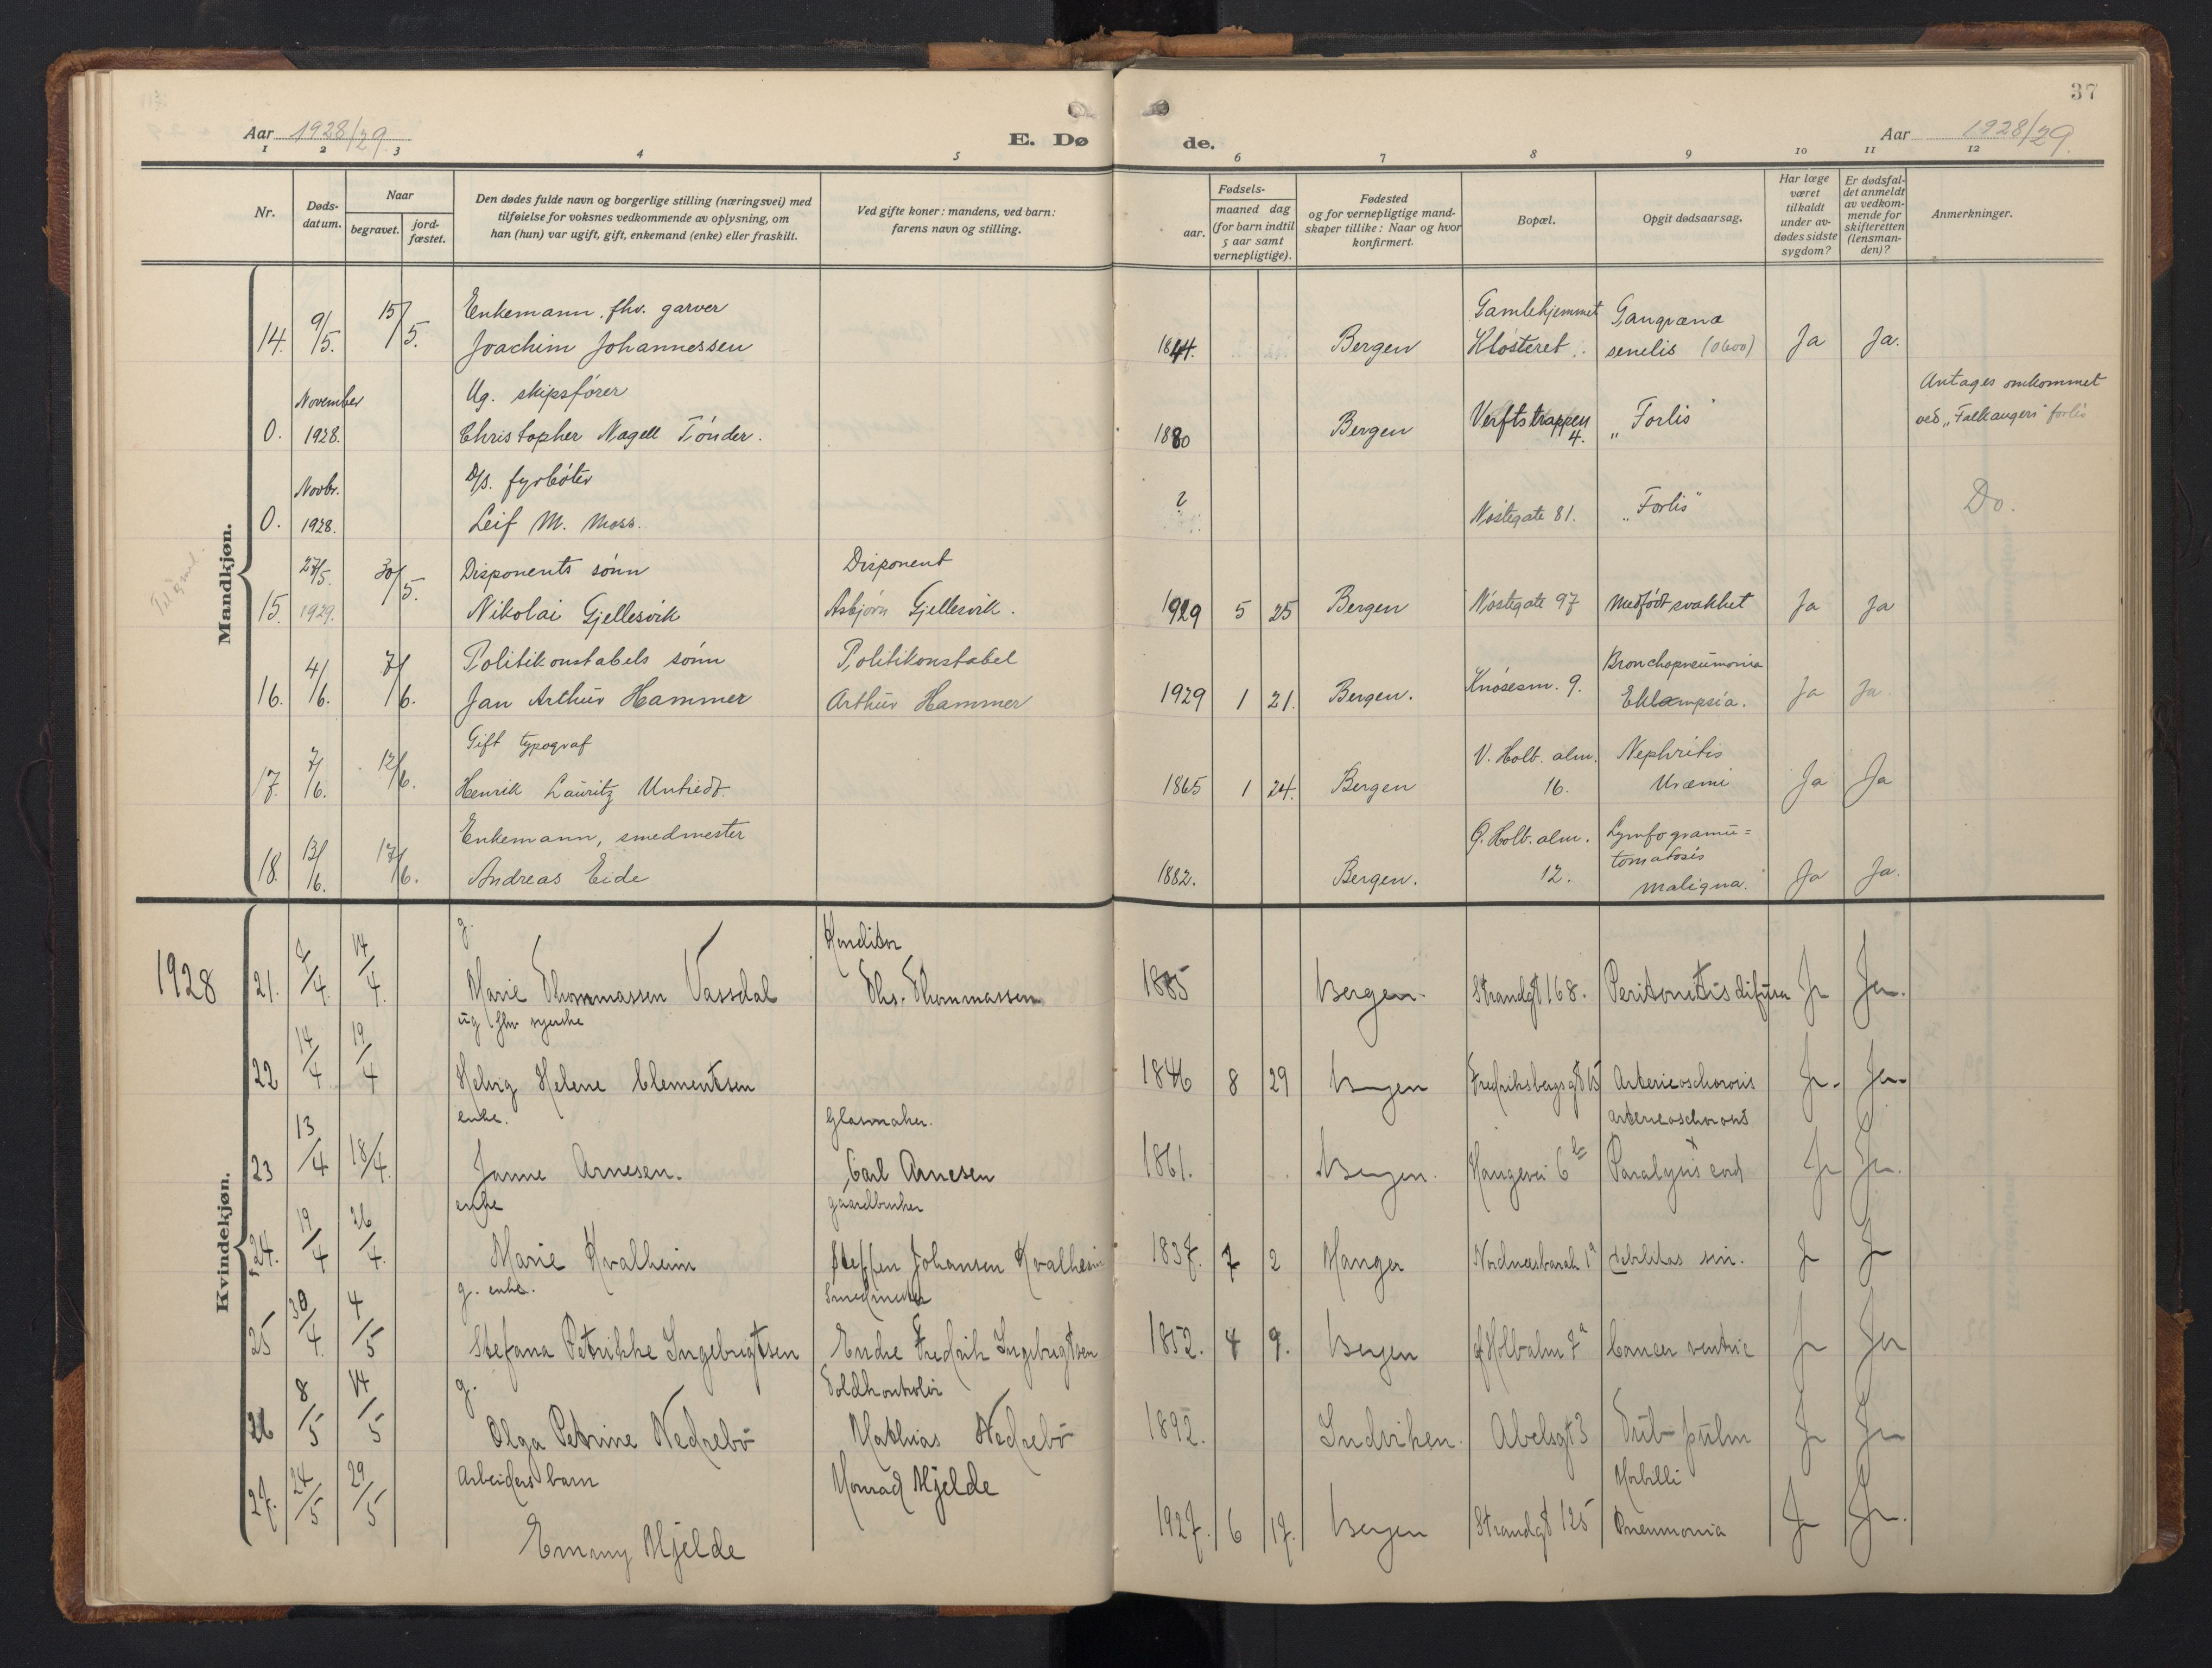 37
Aar 1928/29.
E. Døde.
Aar 1928/29.
1 2 3 4 5 6 7 8 9 10 11 12
Nr.
Døds-
datum.
Naar
begravet.
jord-
fæstet.
Den dødes fulde navn og borgerlige stilling (næringsvei) med
tilføielse for voksnes vedkommende av oplysning, om
han (hun) var ugift, gift, enkemand (enke) eller fraskilt.
Ved gifte koner: mandens, ved barn:
farens navn og stilling.
Fødsels-
aar.
maaned dag
(for barn indtil
5 aar samt
vernepligtige).
Fødested
og for vernepligtige mand-
skaper tillike: Naar og hvor
konfirmert.
Bopæl.
Opgit dødsaarsag.
Har læge
været
tilkaldt
under av-
dødes sidste
sygdom?
Er dødsfal-
det anmeldt
av vedkom-
mende for
skifteretten
(lensman-
den)?
Anmerkninger.
Mandkjøn.
Enkemann, fhv. garver Gamlehjemmet Gangræna
14. 9/5. 15/5. Joachim Johannessen 1844. Bergen Klosteret senelis (0600) Ja Ja.
November Ug. skipsfører Antages omkommet
0. 1928. Christopher Nagell Tønder. 1880 Bergen Verftstrappen 4. "Forlis" ved "Falkangers" forlis
Novbr. D/s. fyrbøter
0. 1928. Leif M. Moss. ? Nøstegate 81. "Forlis" Do.
27/5. 30/5. Disponents sønn Disponent
15. 1929. Nikolai Gjellesvik Asbjørn Gjellesvik. 1929 5 25 Bergen Nøstegate 97 Medfødt svakhet Ja Ja
Politikonstabels sønn Politikonstabel Bronchopneumonia
16. 4/6. 7/6. Jan Arthur Hammer Arthur Hammer 1929 1 21. Bergen. Knøsesm. 9. Eklampsia. Ja Ja
Gift typograf V. Holb. alm. Nephritis
17. 7/6. 12/6. Henrik Lauritz Untiedt. 1865 1 24. Bergen 16. Uræmi Ja Ja
Enkemann, smedmester Ø. Holb. alm. Lymfogranu=
tomatosis
18. 13/6. 17/6. Andreas Eide 1882. Bergen. 12. maligna. Ja Ja.
Kvindekjøn.
1928
g. Konditor
21. /4. 14/4. Marie Thommassen Vassdal Ths. Thommassen 1885 Bergen. Strandgt 168. Peritonitis difusa Ja Ja.
ug fhv syerske
22 14/4 19/4 Helvig Helene Clementsen 1846 8 29 Bergen Fredriksbergsgt 15 Arterieoschorosis Ja. Ja.
enke. Glasmaker. arterieoschorosis
23 13/4 18/4. Janne Arnesen. Carl Arnesen 1861. Bergen. Haugevei 6 Paralysis cord Ja Ja.
enke gaardbruker
24. 19/4 26/4. Marie Kvalheim Steffen Johansen Kvalheim 1837. 7 2 Manger Nordnesbarak 1a debilitas sen. Ja Ja
g. enke. Smedmester
25 30/4. 4/5 Stefana Petrikke Ingebrigtsen Endre Fredrik Ingebrigtsen 1852. 4 9. Bergen Holbalm 7a Cancer ventric Ja Ja
g. Toldkontrolør
26 8/5 14/5 Olga Petrine Nedrebø Mathias Nedrebø 1892. Indviken. Abelsgt 3 Tub pulm Ja Ja
Arbeiders barn Konrad Hjelde Morbilli
27. 24/5 29/5 Emmy Hjelde 1927. 6 17. Bergen Strandgt 125 Pneumonia Ja Ja.